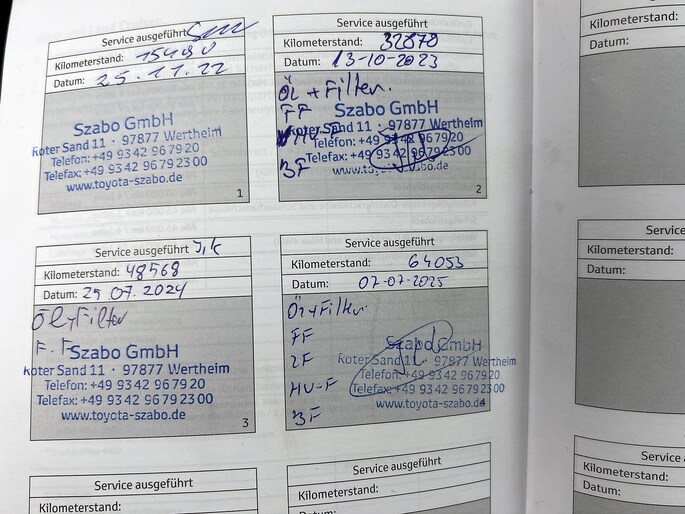 Service ausgeführt
Kilometerstand: 15490
Datum: 25.11.22
Szabo GmbH
Roter Sand 11 · 97877 Wertheim
Telefon: +49 93 42 96 79 20
Telefax: +49 93 42 96 79 23 00
www.toyota-szabo.de
1
Service ausgeführt
Kilometerstand: 32879
Datum: 13-10-2023
Öl + Filter.
FF
Szabo GmbH
Roter Sand 11 · 97877 Wertheim
Telefon: +49 93 42 96 79 20
Telefax: +49 93 42 96 79 23 00
BF
www.toyota-szabo.de
2
Service ausgeführt
Kilometerstand: 48568
Datum: 29.07.2024
Öl+Filter
F.F
Szabo GmbH
Roter Sand 11 · 97877 Wertheim
Telefon: +49 93 42 96 79 20
Telefax: +49 93 42 96 79 23 00
www.toyota-szabo.de
3
Service ausgeführt
Kilometerstand: 64053
Datum: 07-07-2025
Öl+Filter
FF
Szabo GmbH
LF
Roter Sand 11 · 97877 Wertheim
Telefon: +49 93 42 96 79 20
HU-F
Telefax: +49 93 42 96 79 23 00
www.toyota-szabo.de
BF
4
Service ausgeführt
Kilometerstand:
Service ausgeführt
Kilometerstand:
Kilometerstand:
Datum:
Service
Kilometerstand:
Datum:
Service
Kilometerstand:
Datum: